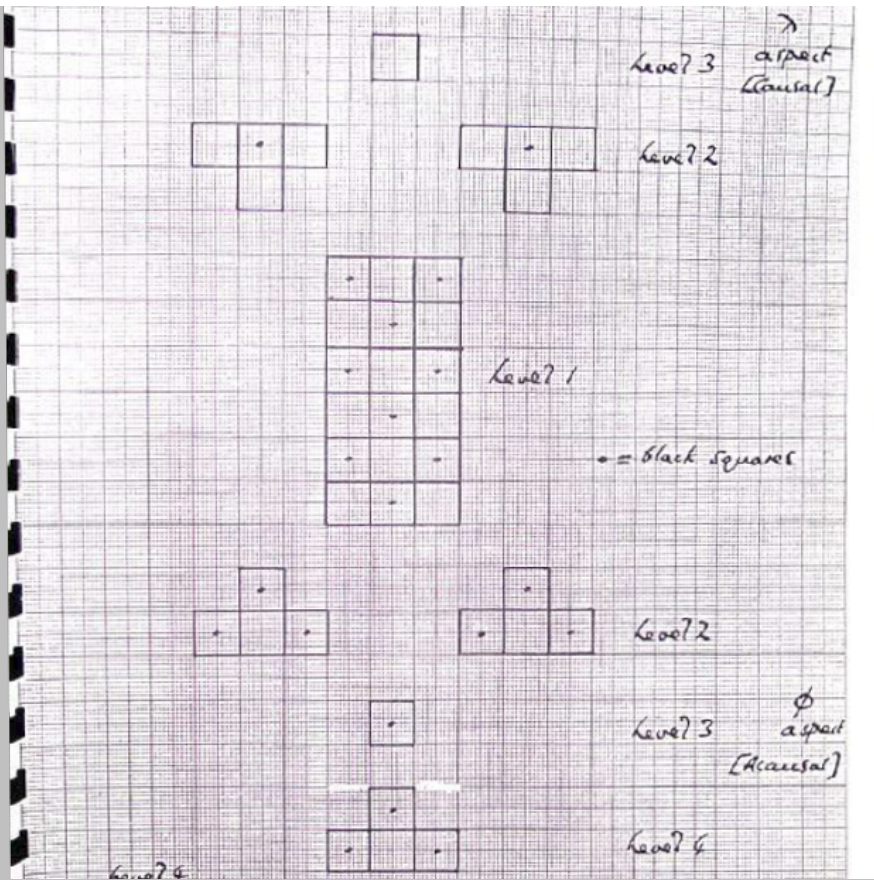 λ
Level 3 aspect
[Causal]
Level 2
Level 1
• = black squares
Level 2
φ
Level 3 aspect
[Acausal]
Level 4
Level 4